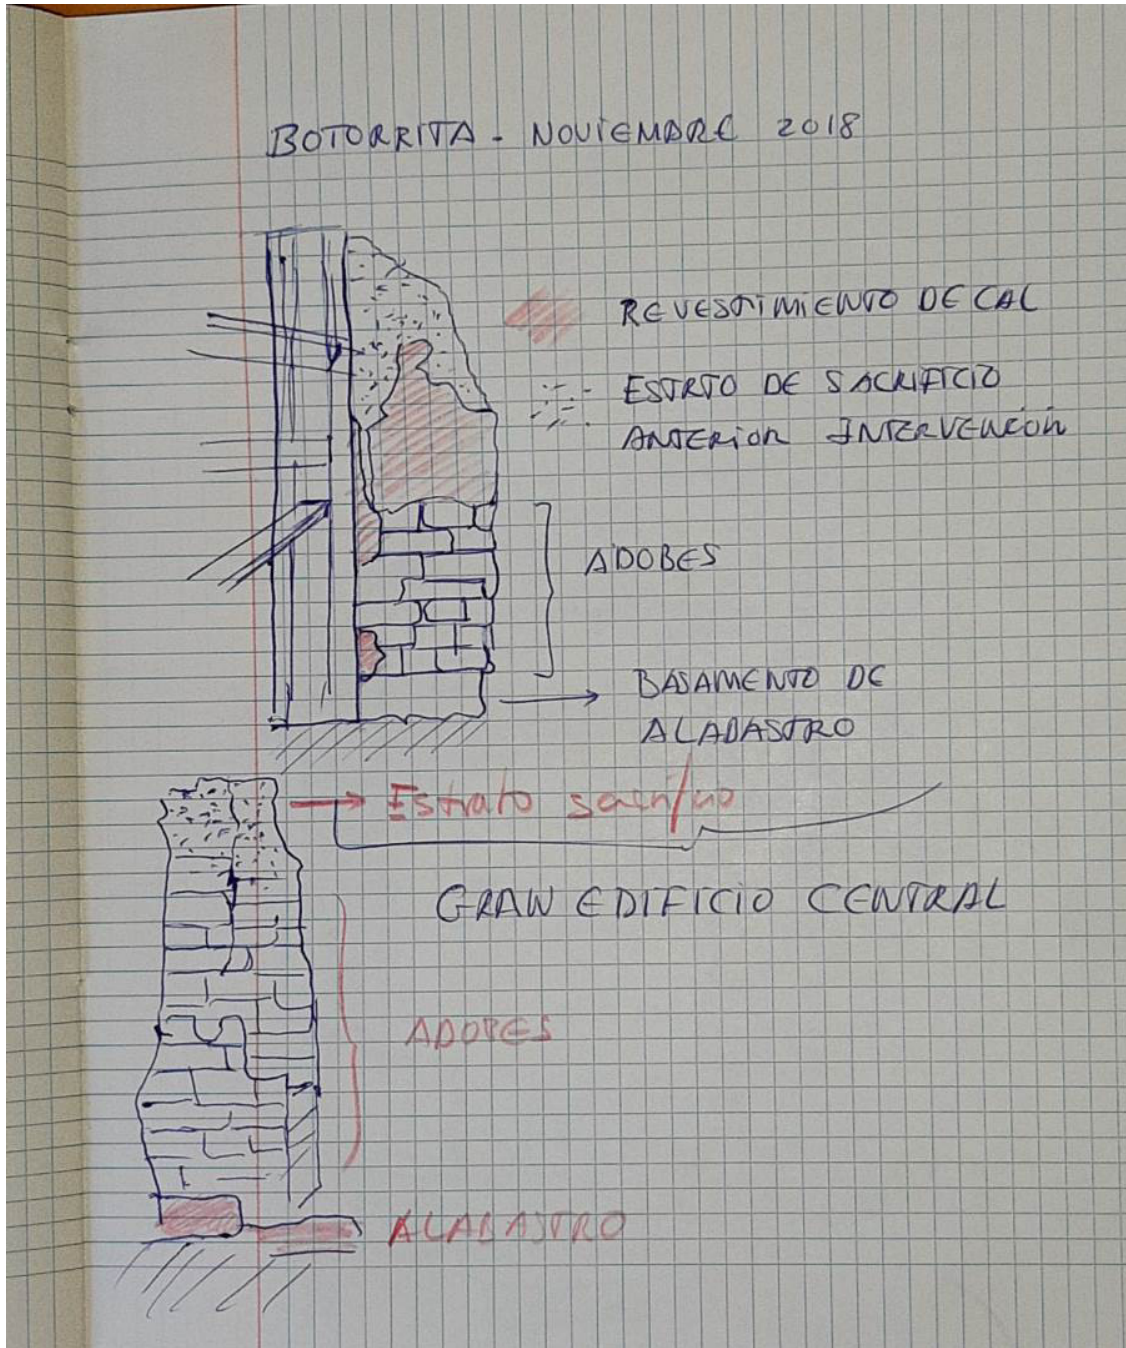 BOTORRITA - NOVIEMBRE 2018
REVESTIMIENTO DE CAL
ESTRTO DE SACRIFICIO
ANTERIOR INTERVENCIÓN
ADOBES
BASAMENTO DE
ALABASTRO
Estrato sacrificio
GRAN EDIFICIO CENTRAL
ADOBES
ALABASTRO